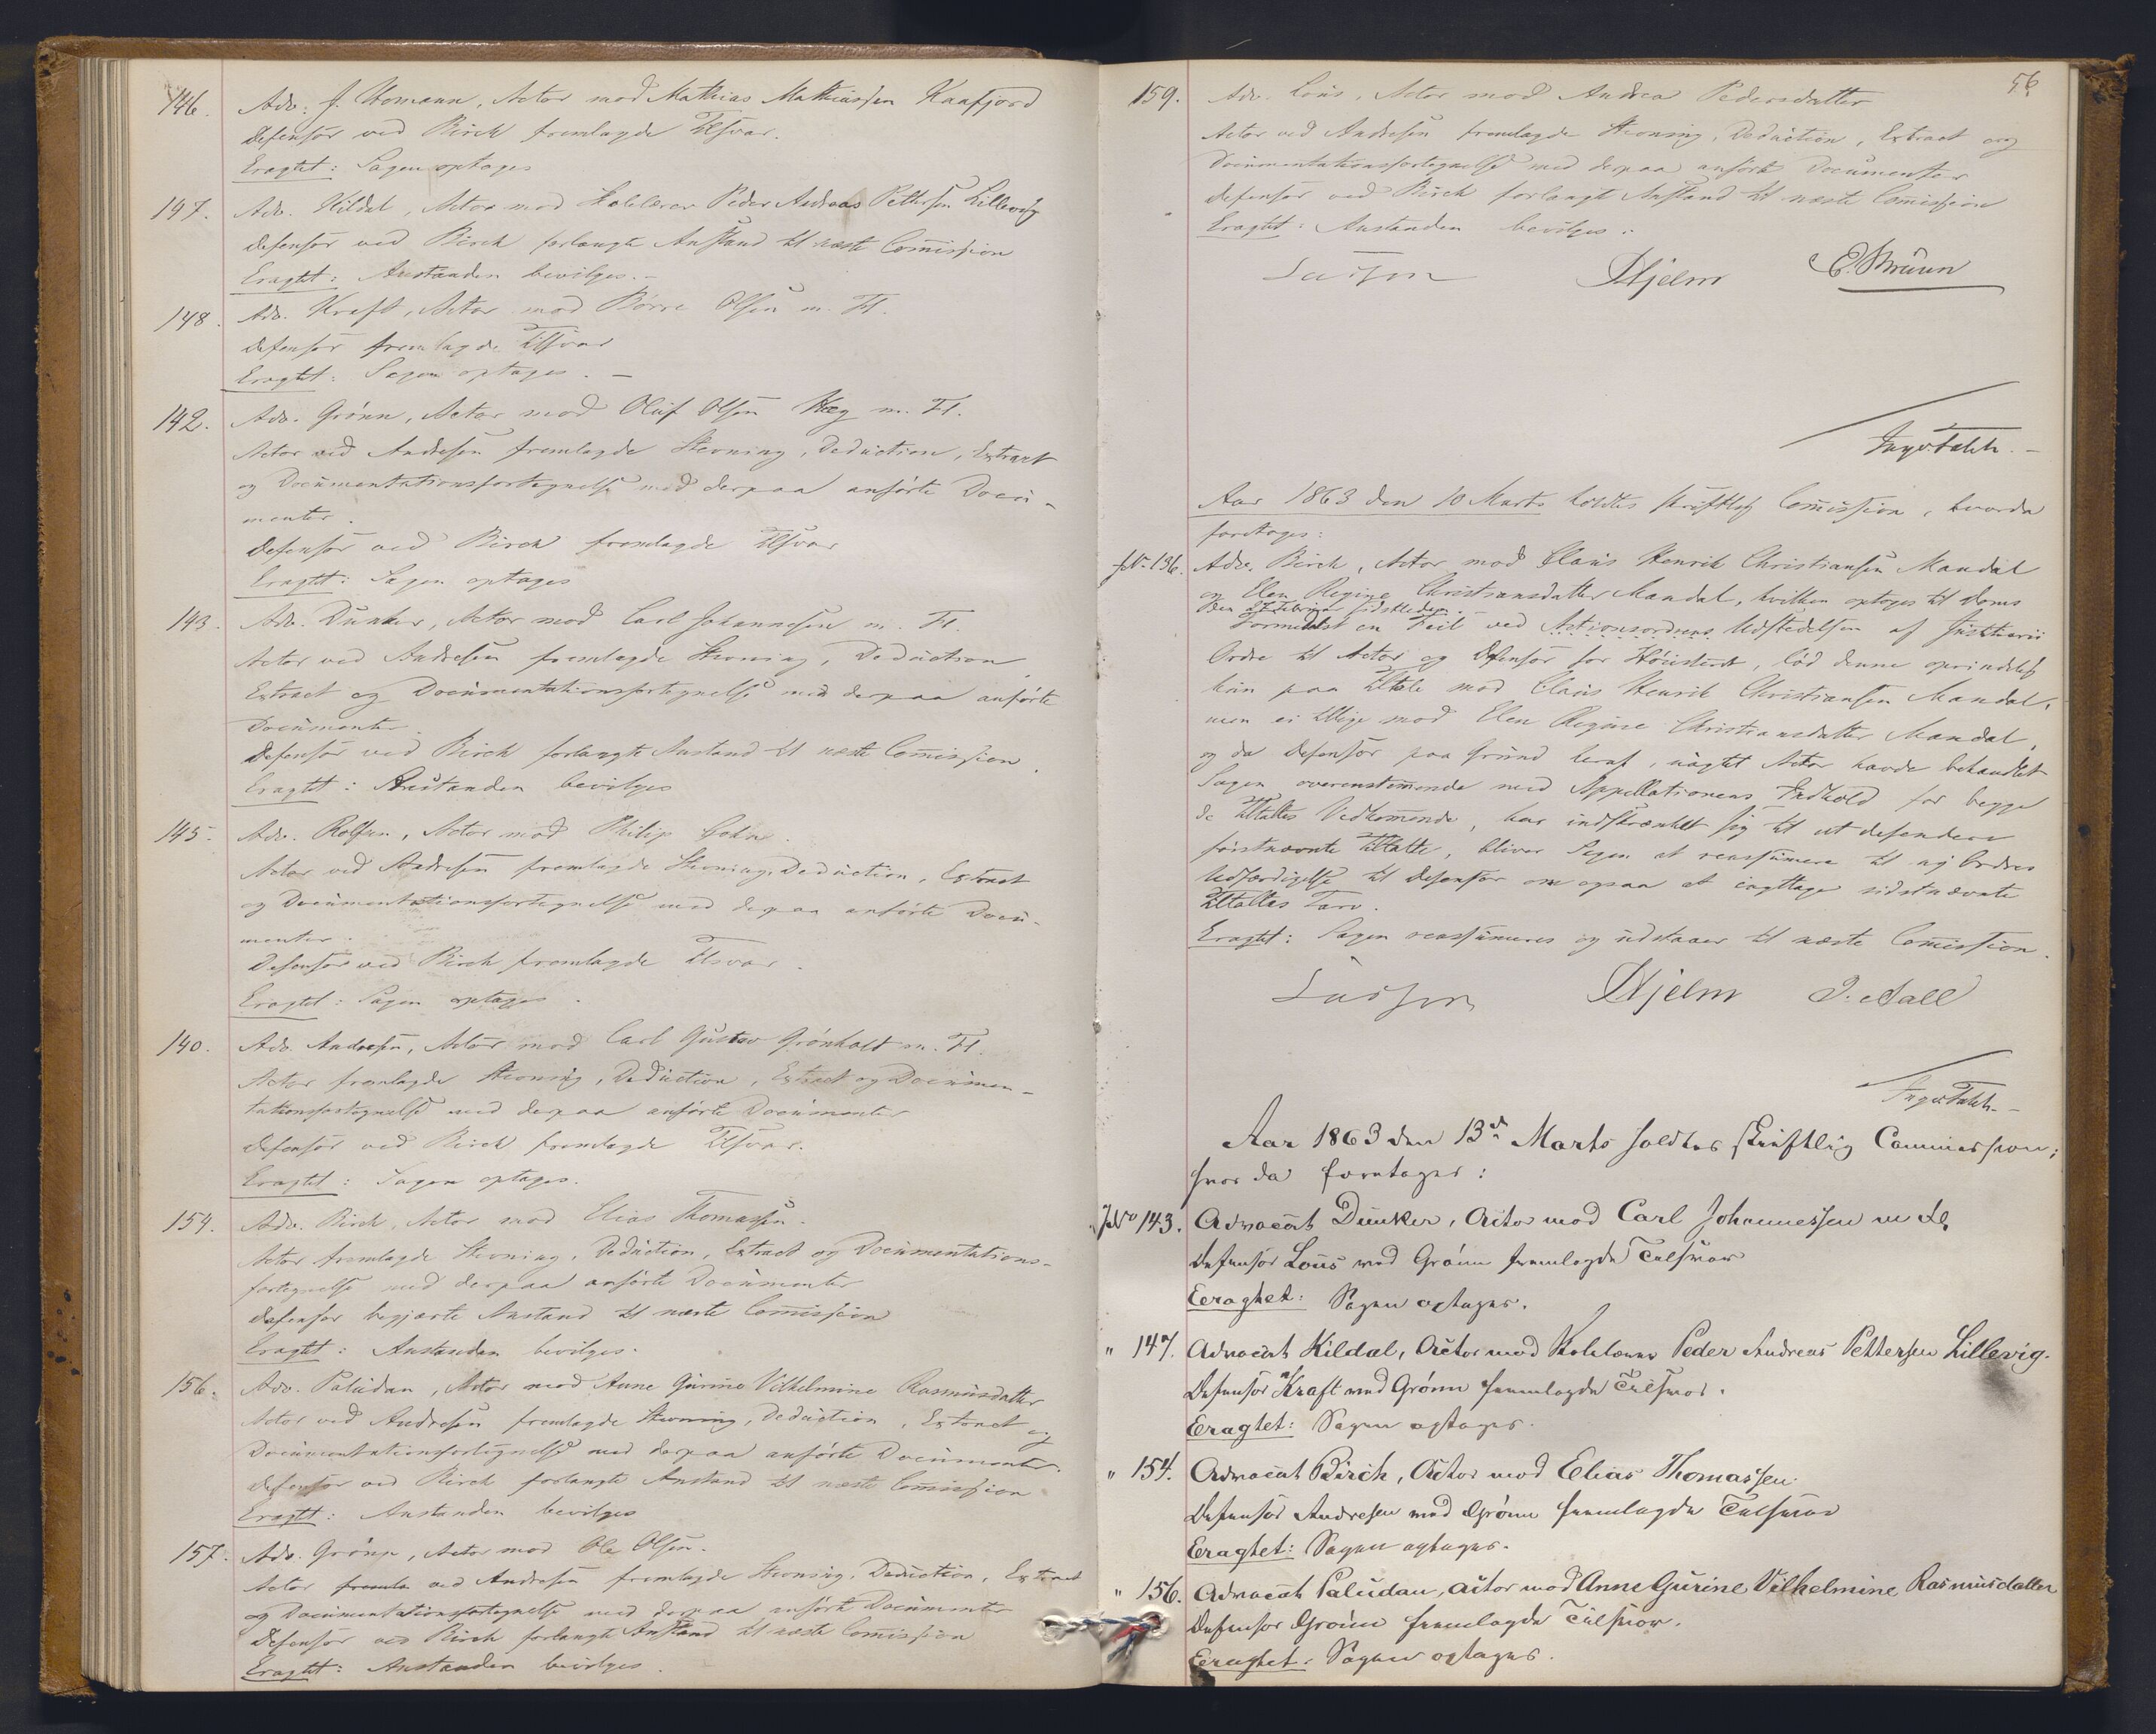 146. Adv. J. Homann, Actor mod Mathias Mathiassen Kaafjord
Defensor ved Birch fremlagde Tilsvar.
Eragtet: Sagen optages
147. Adv. Kildal, Actor mod Peder Andreas Pettersen Lillevig
Defensor ved Birch forlangte Anstand til næste Com̄ission
Eragtet: Anstanden bevilges.-
148. Adv. Kraft, Actor mod Børre Olsen m. Fl.
Defensor fremlagde Tilsvar
Eragtet: Sagen optages. -
142. Adv. Grønn, Actor mod Oluf Olsen Hæg m. Fl.
Actor ved Andresen fremlagde Stevning, Deduction, Extract
og Documentationsfortegnelse med derpaa anførte Docu-
menter.
Defensor ved Birch fremlagde Tilsvar
Eragtet: Sagen optages
143. Adv. Dunker, Actor mod Carl Johannesen m. Fl.
Actor ved Andresen fremlagde Stevning, Deduction,
Extract og Documentationsfortegnelse med derpaa anførte
Documenter.
Defensor ved Birch forlangte Anstand til næste Com̄ission.
Eragtet: Anstanden bevilges
145. Adv. Rolfsen, Actor mod Philip Cohn.
Actor ved Andresen fremlagde Stevning, Deduction, Extract
og Documentationsfortegnelse med derpaa anførte Docu-
menter.
Defensor ved Birch fremlagde Tilsvar.
Eragtet: Sagen optages.
140. Adv. Andresen, Actor mod Carl Gustav Grønholt m. Fl.
Actor fremlagde Stevning, Deduction, Extract og Documen-
tationsfortegnelse med derpaa anførte Documenter
Defensor ved Birch fremlagde Tilsvar.
Eragtet: Sagen optages.
154. Adv. Birch, Actor mod Elias Thomassen.
Actor fremlagde Stevning, Deduction, Extract og Documentations-
fortegnelse med derpaa anførte Documenter
Defensor begjærte Anstand til næste Com̄ission
Eragtet: Anstanden bevilges.
156. Adv. Paludan, Actor mod Anne Gurine Vilhelmine Rasmusdatter
Actor ved Andresen fremlagde Stevning, Deduction, Extract og
Documentationsfortegnelse med derpaa anførte Documenter.
Defensor ved Birch forlangte Anstand til næste Com̄ission
Eragtet: Anstanden bevilges
157. Adv. Grønn, Actor mod Ole Olsen.
Actor ved Andresen fremlagde Stevning, Deduction, Extract
og Documentationsfortegnelse med derpaa anførte Documenter
Defensor ved Birch forlangte Anstand til næste Com̄ission
Eragtet: Anstanden bevilges.
56
159. Adv. Lous, Actor mod Andrea Pedersdatter
Actor ved Andresen fremlagde Stevning, Deduction, Extract og
Documentationsfortegnelse med derpaa anførte Documenter
Defensor ved Birch forlangte Anstand til næste Com̄ission
Eragtet: Anstanden bevilges.
Lasson Hjelm E. Bruun
Aar 1863 den 10 Marts holdtes skriftlig Com̄ission, hvorda
foretoges:
No. 136. Adv. Birch, Actor mod Claus Henrik Christiansen Mandal
og Elen Regine Christiansdatter Mandal, hvilken optoges til Doms
den 27 Februar sidstleden.
Formedelst en Feil ved Actionsordrens Udstedelsen af Justitiarii
Ordre til Actor og Defensor for Høiesteret, lød denne oprindelig
kun paa Tiltale mod Claus Henrik Christiansen Mandal,
men ei tillige mod Elen Regine Christiansdatter Mandal,
og da Defensor paa Grund heraf, uagtet Actor havde behandlet
Sagen overensstem̄ende med Appellationens Indhold for begge
de Tiltaltes Vedkom̄ende, har indskrænket sig til at defendere
førstnævnte Tiltalte, bliver Sagen at reassumere til ny Ordres
Udfærdigelse til Defensor om ogsaa at iagttage sidstnævnte
Tiltaltes Tarv.
Eragtet: Sagen reassumeres og udstaaer til næste Com̄ission.
Lasson Hjelm J. Aall
Aar 1863 den 13de Marts holdtes skriftlig Commission,
hvor da foretages:
No 143. Advocat Dunker, Actor mod Carl Johannessen m Fl.
Defensor Lous ved Grønn fremlagde Tilsvar
Eragtet: Sagen optages.
" 147. Advocat Kildal, Actor mod Peder Andreas Pettersen Lillevig.
Defensor Kraft ved Grønn fremlagde Tilsvar.
Eragtet: Sagen optages.
" 154. Advocat Birch, Actor mod Elias Thomassen.
Defensor Andresen ved Grønn fremlagde Tilsvar
Eragtet: Sagen optages.
" 156. Advocat Paludan, Actor mod Anne Gurine Vilhelmine Rasmusdatter
Defensor Grønn fremlagde Tilsvar.
Eragtet: Sagen optages.